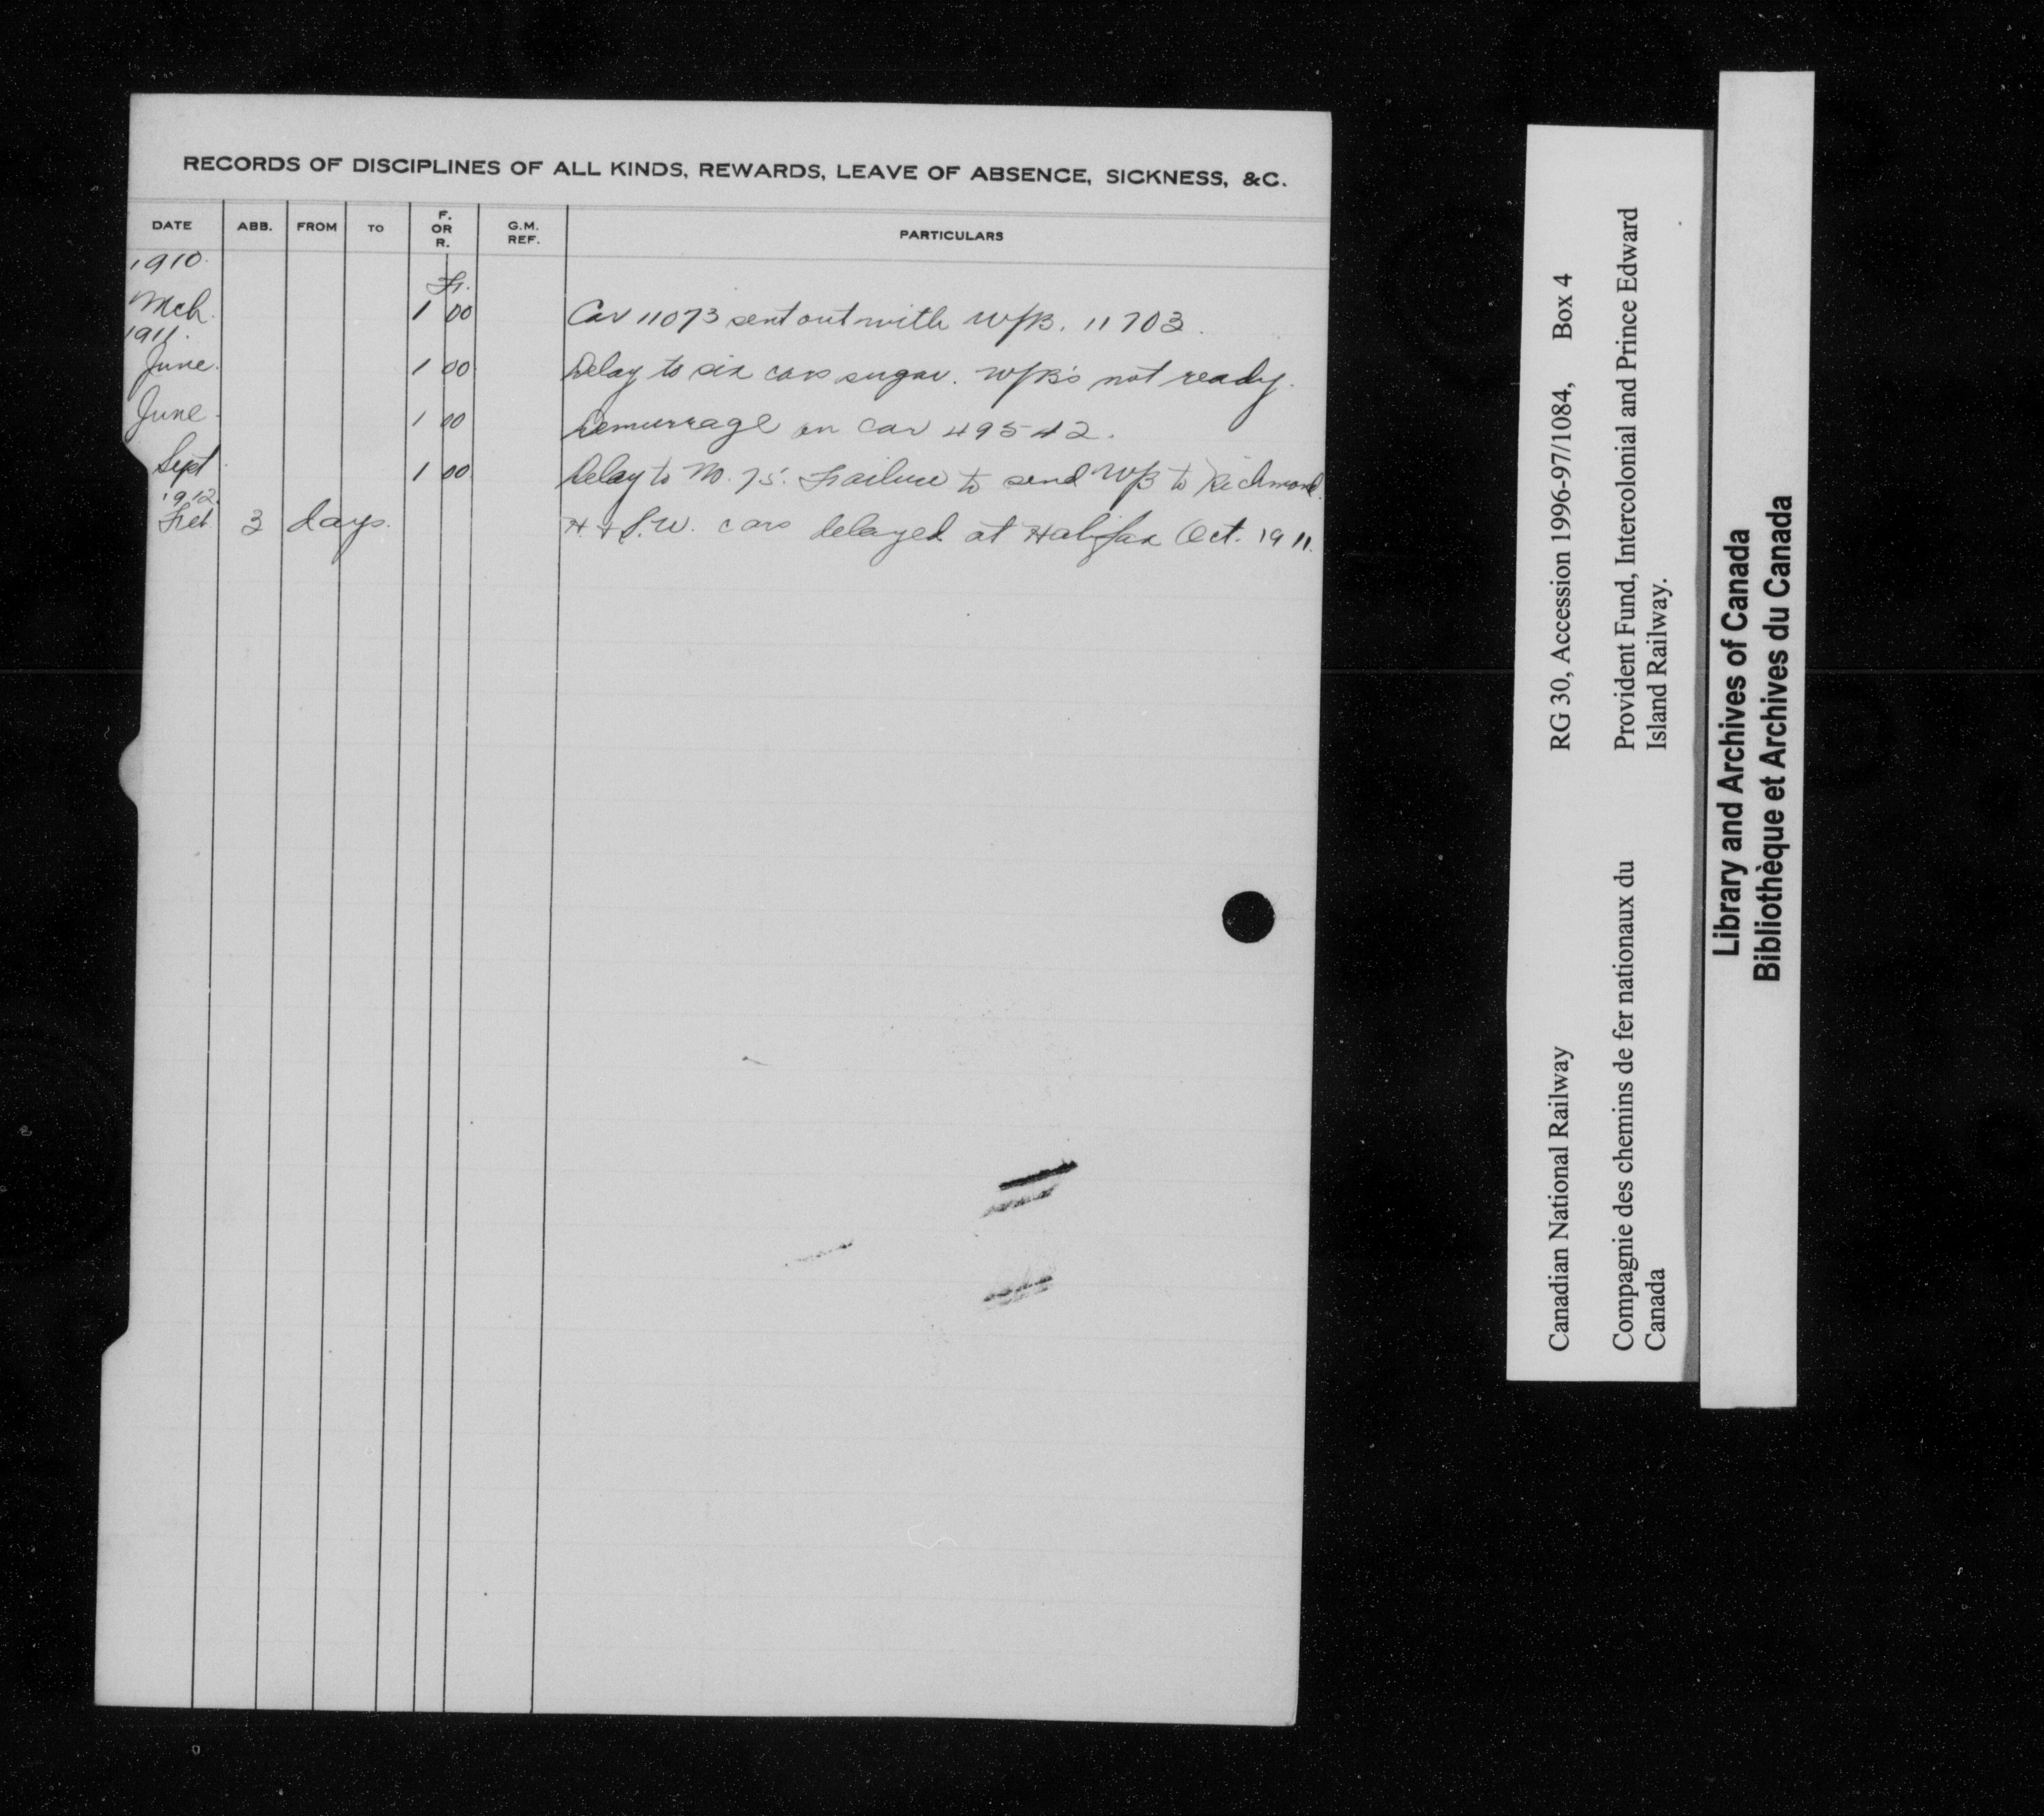 RECORDS OF DISCIPLINES OF ALL KINDS, REWARDS, LEAVE OF ABSENCE, SICKNESS, &C.
DATE ABB. FROM TO F. OR R. G.M. REF. PARTICULARS
1910.
Fr.
Mch. 1 00 Car 11073 sent out with W/B. 11703.
1911.
June. 1 00 Delay to six cars sugar. W/B's not ready.
June. 1 00 Demurrage on car 49542.
Sept. 1 00 Delay to No. 75. Failure to send W/B to Richmond.
1912.
Feb. 3 days. H & S.W. cars delayed at Halifax Oct. 1911.
RG 30, Accession 1996-97/1084, Box 4
Provident Fund, Intercolonial and Prince Edward
Island Railway.
Canadian National Railway
Compagnie des chemins de fer nationaux du
Canada
Library and Archives of Canada
Bibliothèque et Archives du Canada